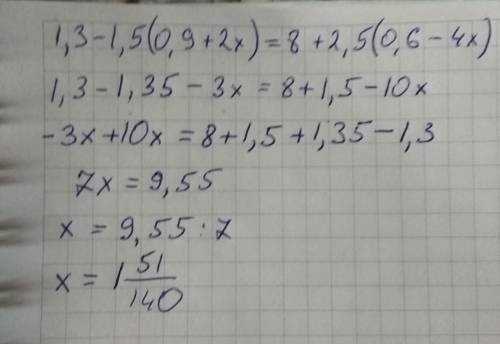 1,3-1,5(0,9+2x)=8+2,5(0,6-4x)
1,3-1,35-3x=8+1,5-10x
-3x+10x=8+1,5+1,35-1,3
7x=9,55
x=9,55:7
x=1 51/140